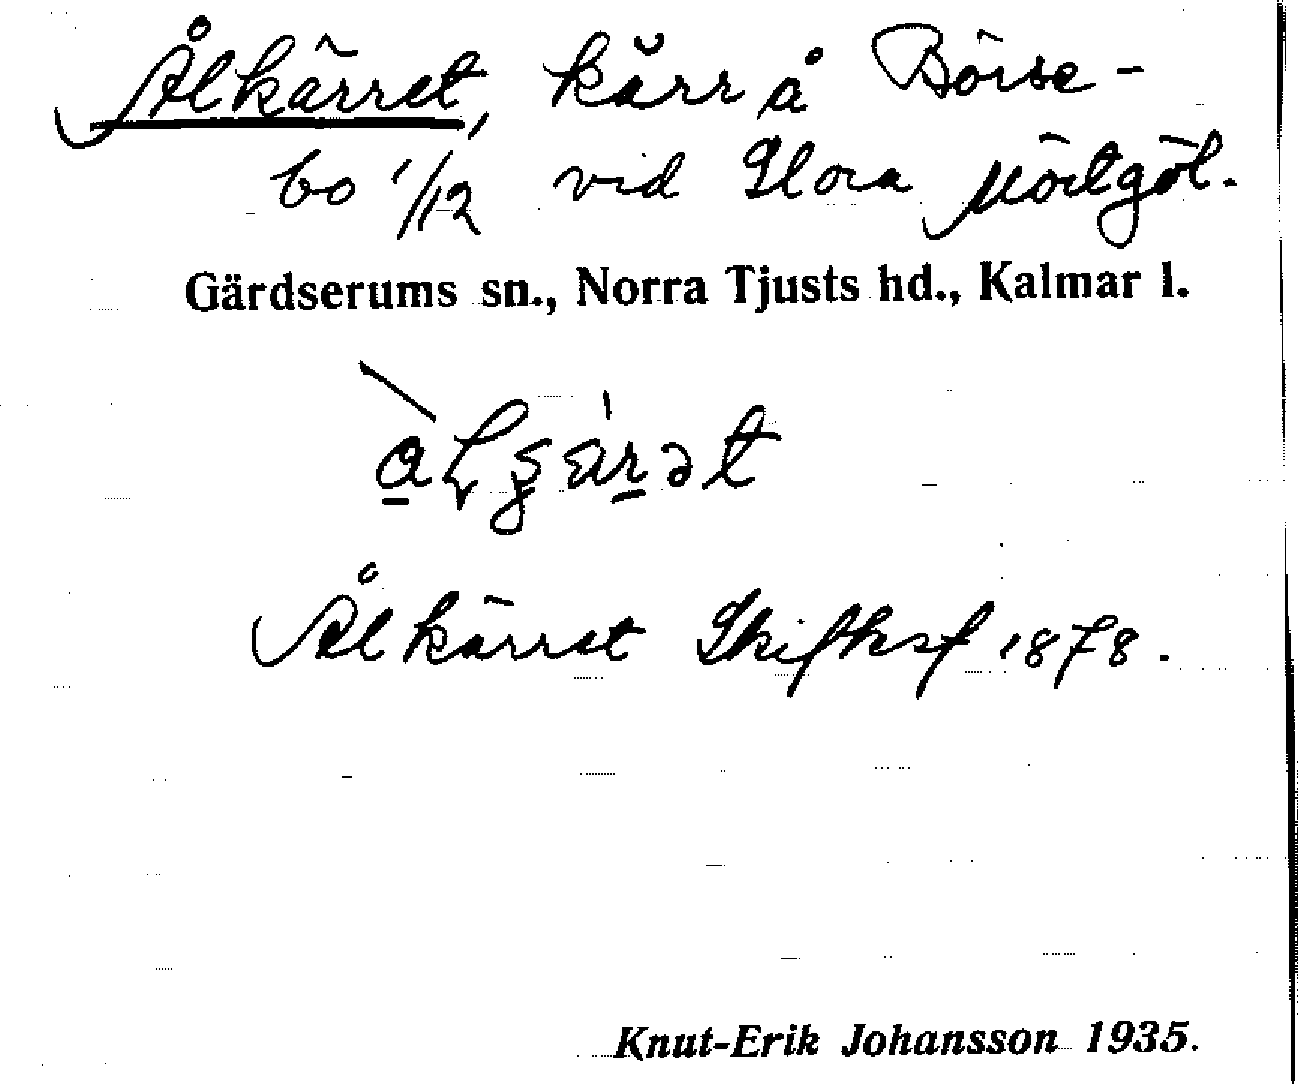 Ålkärret, kärr å Börse-
bo 1/12 vid Stora Mörtgöl.
Gärdserums sn., Norra Tjusts hd., Kalmar l.
Ålkärret Skifksf 1878.
Knut-Erik Johansson 1935.